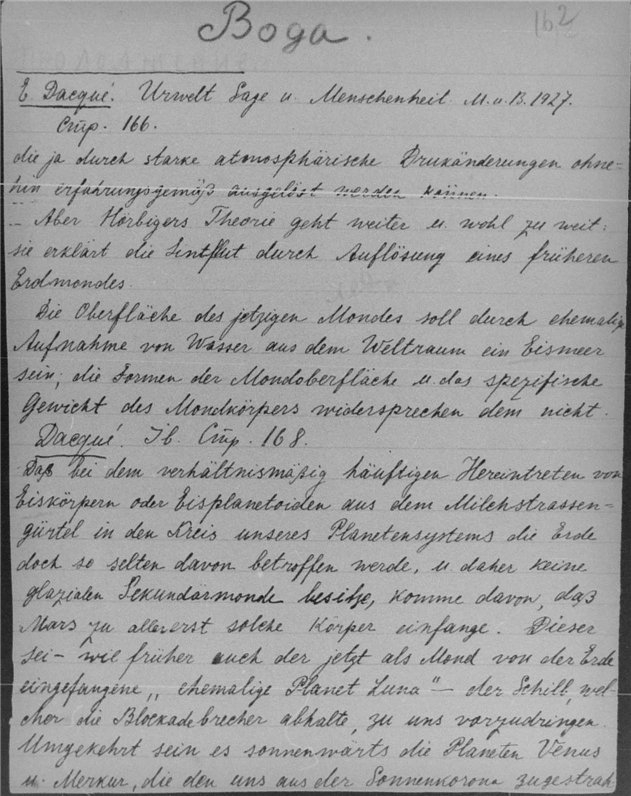 Вода.
162
E. Dacqué. Urwelt Sage u. Menschenheil. M. u. B. 1927.
Стр. 166.
die ja durch starke atmosphärische Drukänderungen ohne=
hin erfahrungsgemäß ausgelöst werden können.
— Aber Hörbigers Theorie geht weiter u. wohl zu weit:
sie erklärt die Sintflut durch Auflösung eines früheren
Erdmondes.
Die Oberfläche des jetzigen Mondes soll durch ehemalige
Aufnahme von Wasser aus dem Weltraum ein Eismeer
sein; die Formen der Mondoberfläche u. das spezifische
Gewicht des Mondkörpers widersprechen dem nicht.
Dacqué. Ib. Стр. 168.
Daß bei dem verhältnismäßig häuftigen Hereintreten von
Eiskörpern oder Eisplanetoiden aus dem Milchstrassen=
gürtel in den Kreis unseres Planetensystems die Erde
doch so selten davon betroffen werde, u. daher keine
glazialen Sekundärmonde besitze, komme davon, daß
Mars zu allererst solche Körper einfange. Dieser
sei — wie früher auch der jetzt als Mond von der Erde
eingefangene „ ehemalige Planet Luna" — der Schill, wel=
cher die Blockadebrecher abhalte, zu uns vorzudringen.
Umgekehrt sein es sonnenwärts die Planeten Venus
u. Merkur, die den uns aus der Sonnenkorona zugestrah